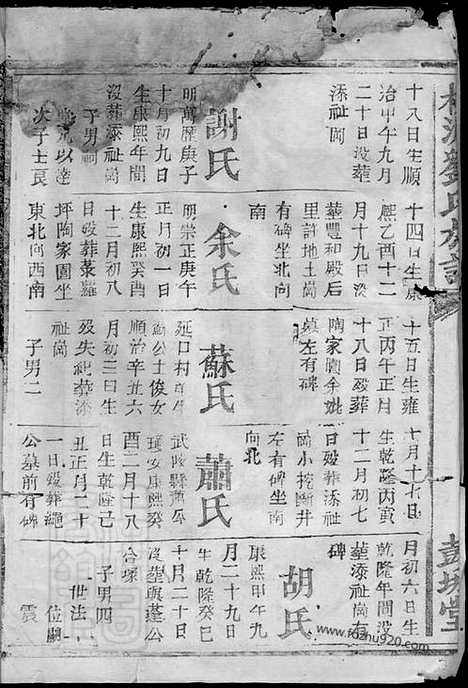 劉氏族譜
彭城堂
十八日生順
治甲午九月
二十日没葬
添祉崗
謝氏
明萬歷庚子
十月初九日
生康熙年間
没葬添祉崗
子男嗣
以達
次子士良
十四日生康
熙乙酉十二
月十九日没
葬豐和殿后
里許地土崗
有碑坐北向
南
余氏
明崇正庚午
正月初一日
生康熙癸酉
十二月初八
日殁葬葉羅
坪陶家園坐
東北向西南
十五日生雍
正丙午正月
十八日殁葬
陶家園余妣
墓左有碑
蘇氏
延口村生
蘇公士俊女
順治辛丑六
月初三日生
殁失紀葬添
祉崗
子男二
十月十七日
生乾隆丙寅
十二月初七
日殁葬添祉
崗小挖斷井
左有碑坐南
向北
蕭氏
武陵縣蕭公
瓊安康熙癸
酉二月十八
生乾隆己
丑正月二十
一日殁葬繩
公墓前有碑
月初六日生
乾隆年間没
葬添祉崗有
碑
胡氏
康熙甲午九
月二十九日
生乾隆癸巳
十月二十日
没葬與蓬公
合塚
子男四
世法
位嗣
震
www.fozhu920.com